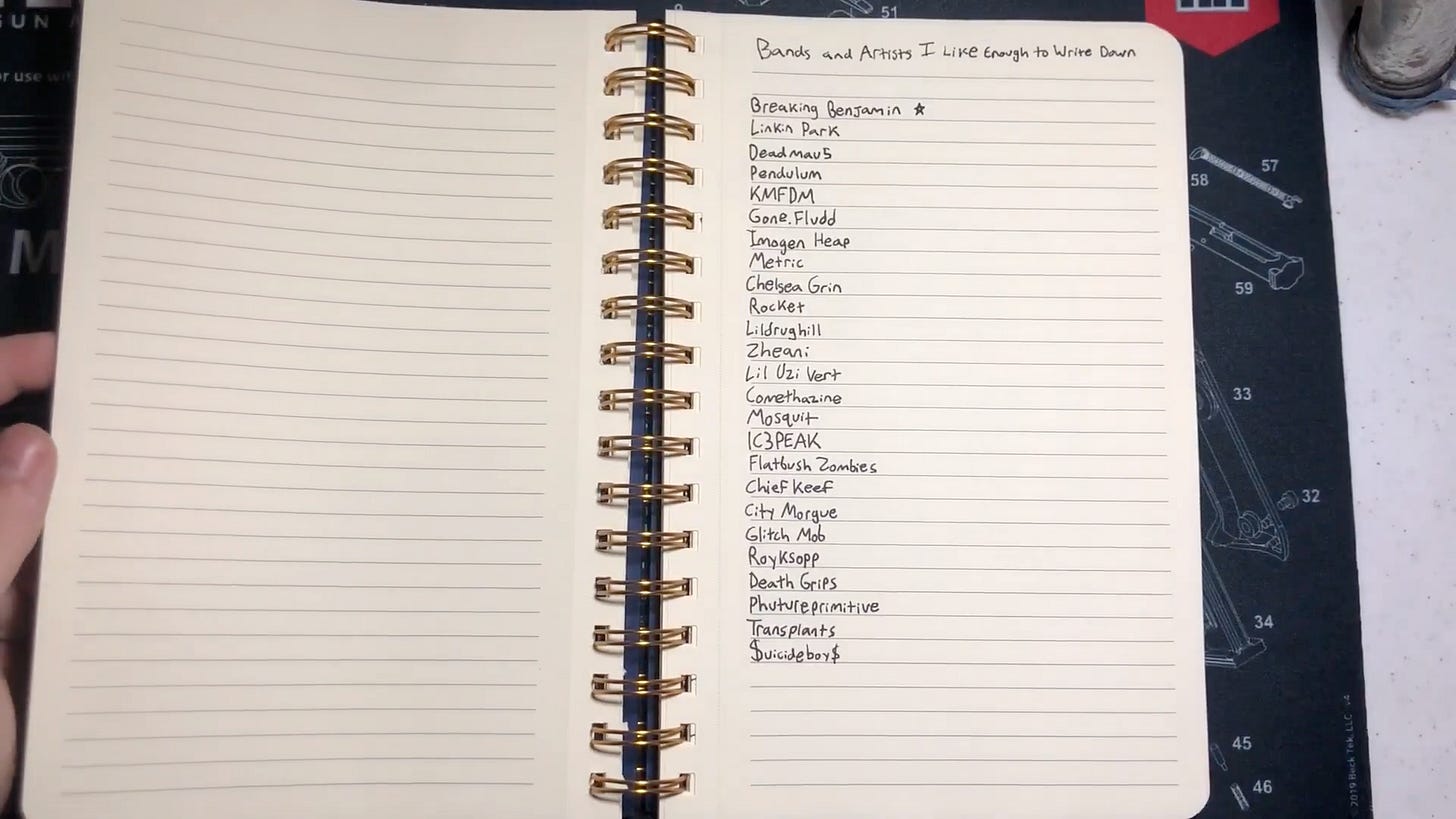 GUN
or use wit
M
9
51
57
58
59
33
32
34
45
46
2019 Beck Tek, LLC v4
Bands and Artists I Like Enough to Write Down
Breaking Benjamin ☆
Linkin Park
Deadmau5
Pendulum
KMFDM
Gone.Fludd
Imogen Heap
Metric
Chelsea Grin
Rocket
Lildrughill
Zheani
Lil Uzi Vert
Comethazine
Mosquit
IC3PEAK
Flatbush Zombies
Chief Keef
City Morgue
Glitch Mob
Royksopp
Death Grips
Phutureprimitive
Transplants
$uicideboy$